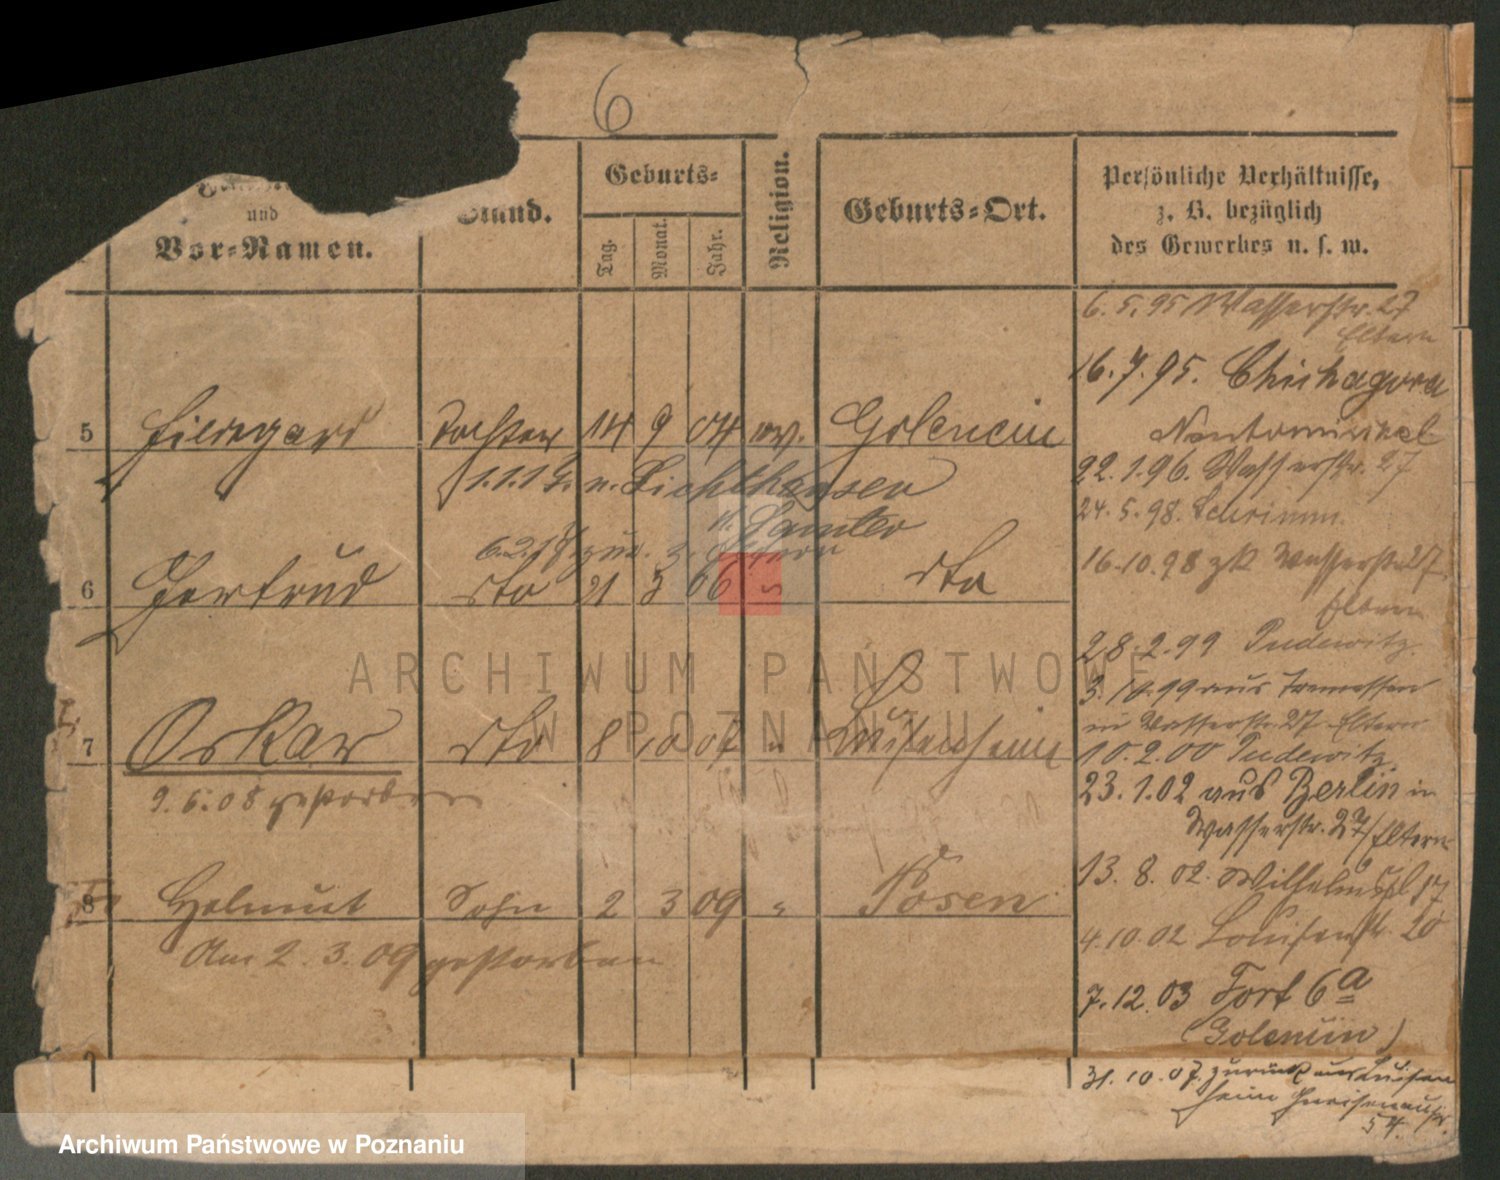 6
und
Vor-Namen.
Stand.
Geburts-
Tag.
Monat.
Jahr.
Religion.
Geburts-Ort.
Persönliche Verhältnisse,
z. B. bezüglich
des Gewerbes u. s. w.
5 Hildegard Tochter 14 9 04 ev. Golencin
1.1.18. n.
n. Samter
6.2.18 zur. z. Eltern
6 Gertrud dto 21 3 06 " dto
7 Oskar dto 8 10 07 " Luisenheim
9.6.08 gestorben
8 Helmut Sohn 2 3 09 " Posen
Am 2.3.09 gestorben
6.5.95 Wasserstr. 27
Eltern
16.7.95.
22.1.96. Wasserstr. 27
24.5.98. Schrimm.
16.10.98 zk Wasserstr. 27
Eltern
28.2.99 Pudewitz.
3.10.99 aus Tremessen
in Wasserstr. 27 Eltern
10.2.00 Pudewitz.
23.1.02 aus Berlin in
Wasserstr. 27/Eltern
13.8.02. Wilhelmspl 17
4.10.02 Louisenstr. 20
7.12.03 Fort 6a
(Golencin)
31.10.07. zurück aus Luisen
heim Gneisenaustr.
54.
ARCHIWUM PAŃSTWOWE
W POZNANIU
Archiwum Państwowe w Poznaniu